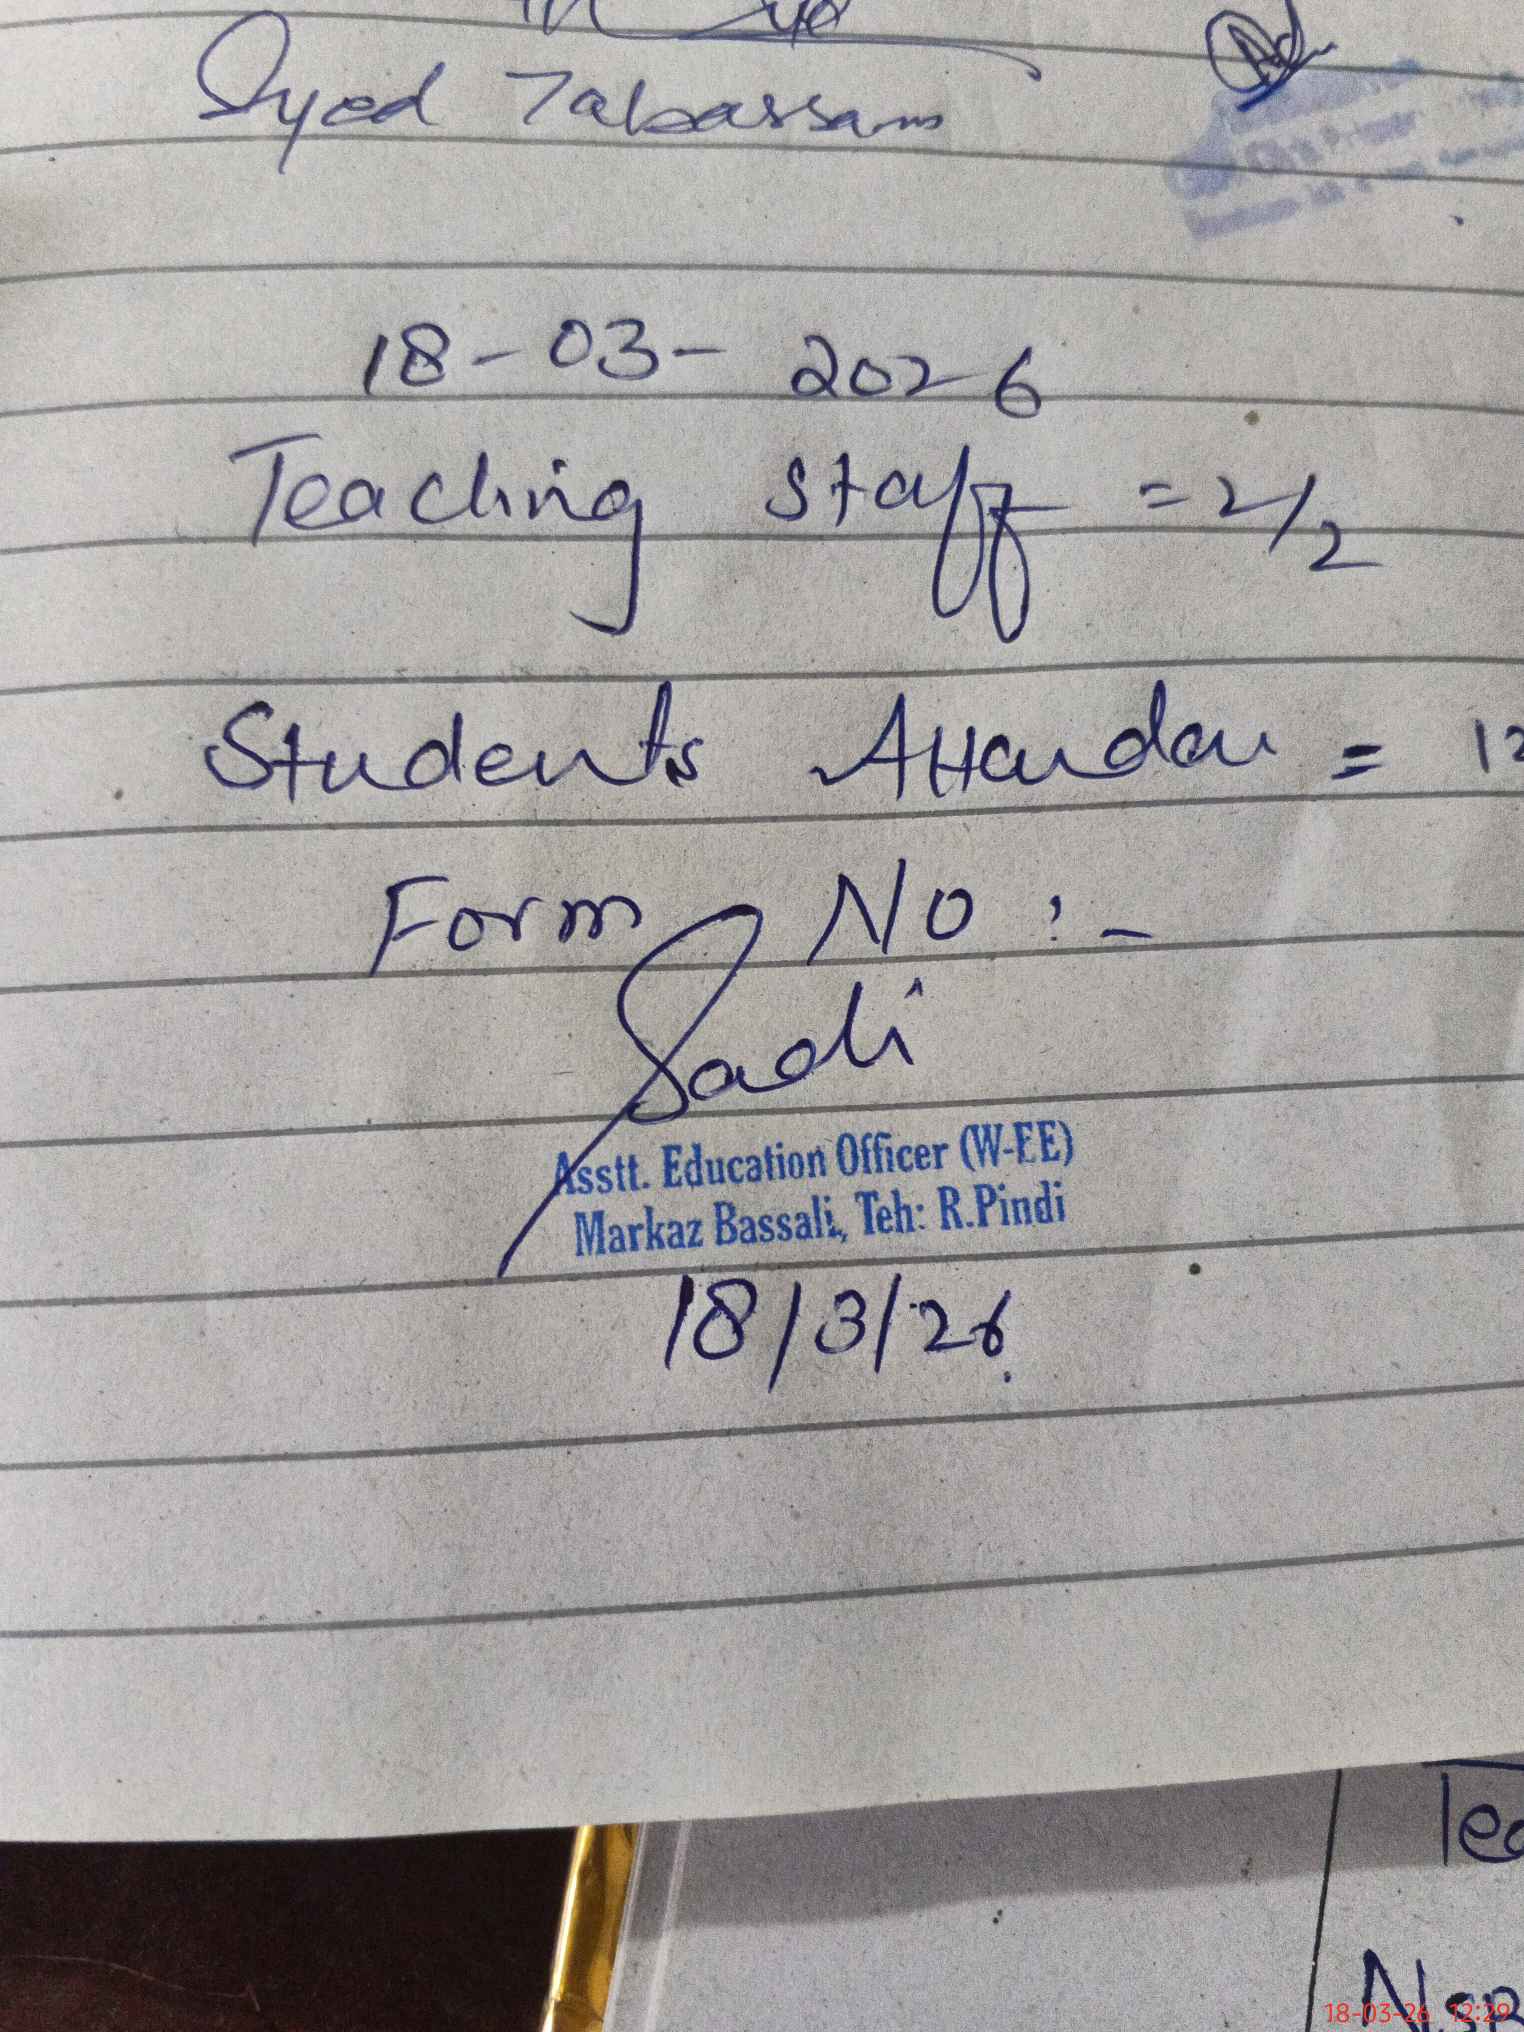 Syed Tabassam
18-03-2026
Teaching staff = 2/2
Students Attandan = 12
Form No :-
Sadi
Asstt. Education Officer (W-EE)
Markaz Bassali, Teh: R.Pindi
18/3/26
Tea
N.SB
18-03-26 12:29